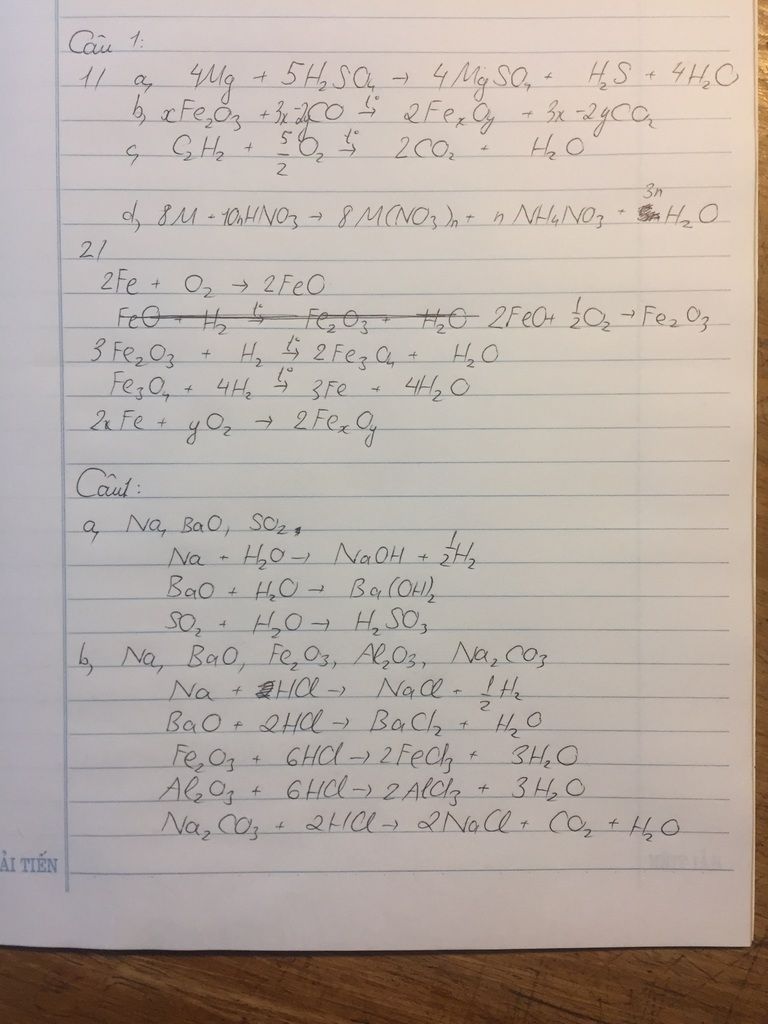 Câu 1:
1/ a, 4Mg + 5H₂SO₄ → 4MgSO₄ + H₂S + 4H₂O
b, xFe₂O₃ + 3x-2yCO t°→ 2FeₓOy + 3x-2yCO₂
c, C₂H₂ + 5/2 O₂ t°→ 2CO₂ + H₂O
d, 8M + 10nHNO₃ → 8M(NO₃)ₙ + n NH₄NO₃ + 3n H₂O
2/
2Fe + O₂ → 2FeO
FeO + H₂ t°→ Fe₂O₃ + H₂O 2FeO + 1/2 O₂ → Fe₂O₃
3Fe₂O₃ + H₂ t°→ 2Fe₃O₄ + H₂O
Fe₃O₄ + 4H₂ t°→ 3Fe + 4H₂O
2xFe + yO₂ → 2FeₓOy
Câu1:
a, Na, BaO, SO₂,
Na + H₂O → NaOH + 1/2 H₂
BaO + H₂O → Ba(OH)₂
SO₂ + H₂O → H₂SO₃
b, Na, BaO, Fe₂O₃, Al₂O₃, Na₂CO₃
Na + HCl → NaCl + 1/2 H₂
BaO + 2HCl → BaCl₂ + H₂O
Fe₂O₃ + 6HCl → 2FeCl₃ + 3H₂O
Al₂O₃ + 6HCl → 2AlCl₃ + 3H₂O
Na₂CO₃ + 2HCl → 2NaCl + CO₂ + H₂O
ẢI TIẾN